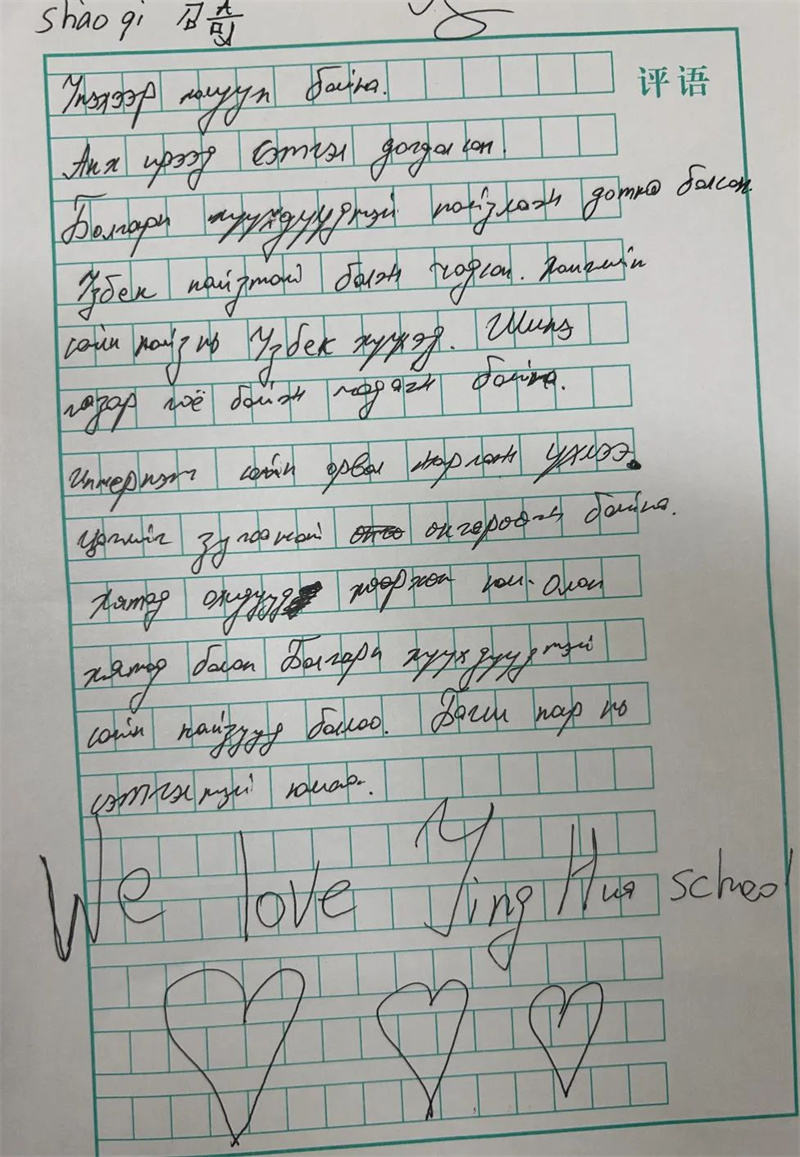 shao qi
评语
Үнэхээр халуун байна.
Анх ирээд сэтгэл догдолсон.
Болгари хүүхдүүдтэй найзлаж дотно болсон.
Узбек найзтай болж чадсан. Хамгийн
сайн найз нь Узбек хүүхэд. Шинэ
газар гоё байж магадгүй байна.
Интернэт сайн орвол жаргаж үхлээ.
Цагийг зугаатай өнгөрөөж байна.
Хятад охидууд хөөрхөн юм. Олон
хятад болон Болгари хүүхдүүдтэй
сайн найзууд боллоо. Багш нар нь
сэтгэлтэй юмаа.
We love Ying Hua school